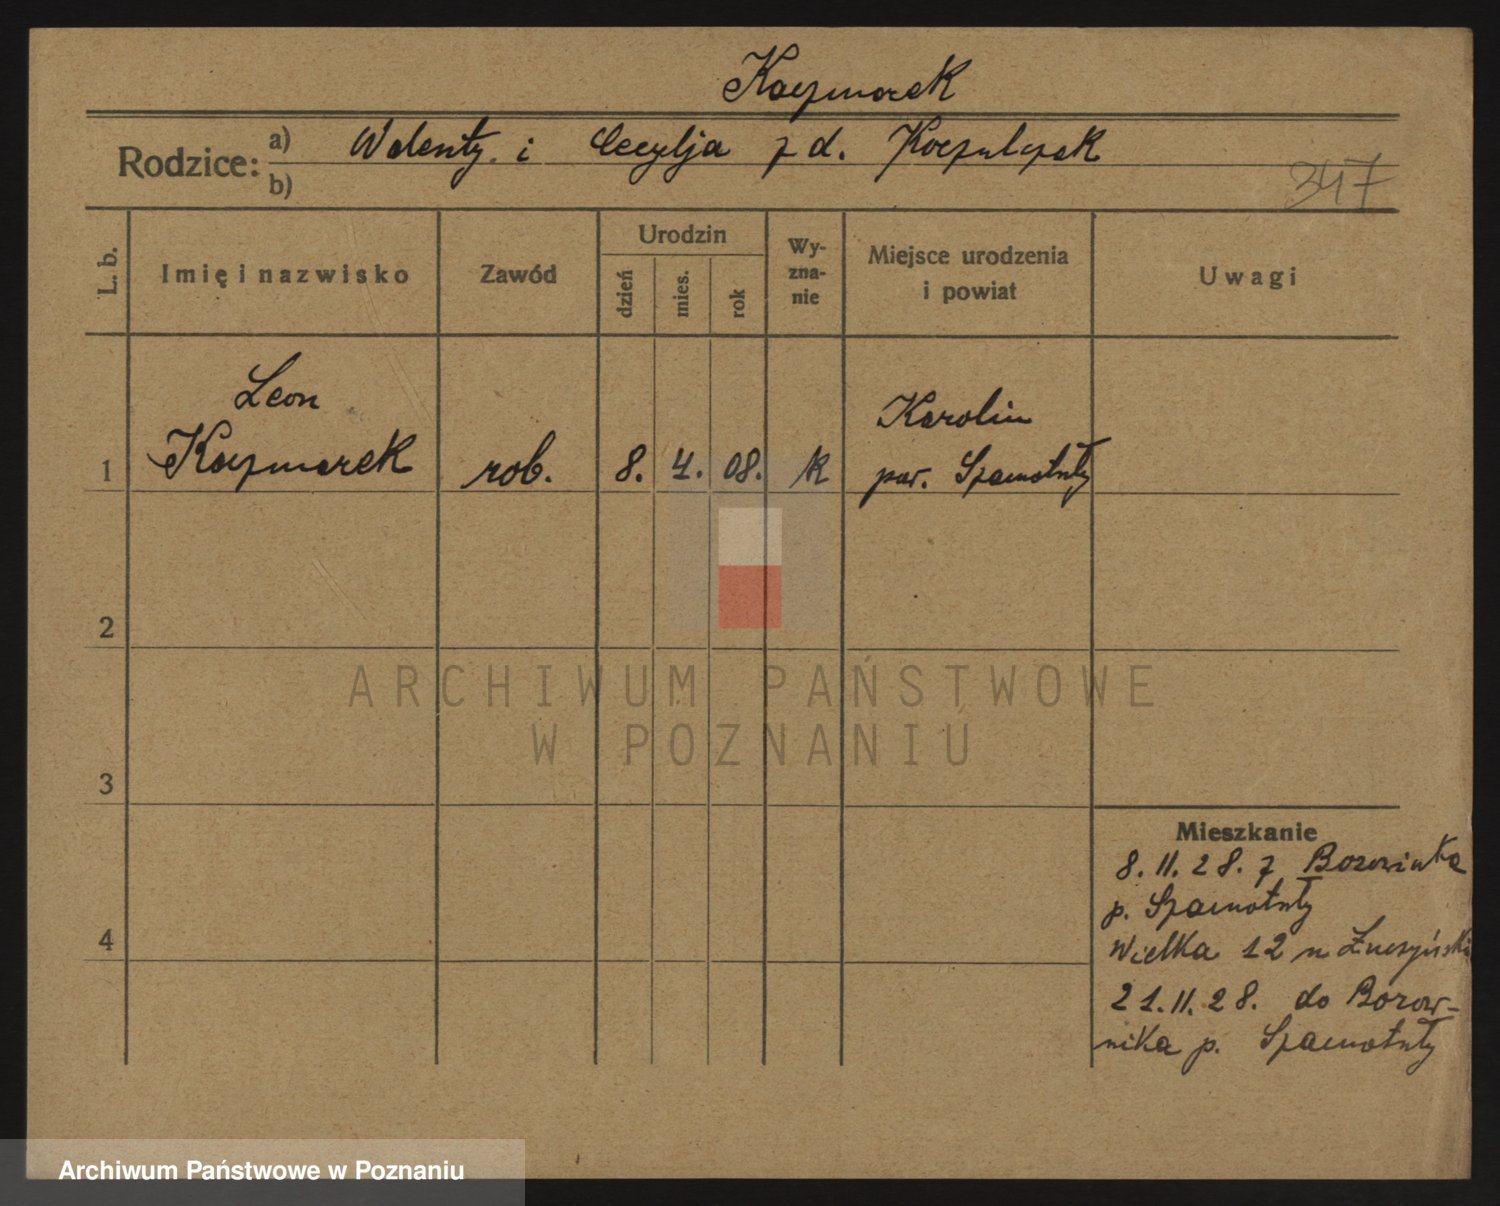 Kaczmarek
Rodzice: a) Walenty i Cecylja z d.
b)
347
L. b.
Imię i nazwisko
Zawód
Urodzin
dzień
mies.
rok
Wy-
zna-
nie
Miejsce urodzenia
i powiat
Uwagi
Leon
1 Kaczmarek rob. 8. 4. 08. k
Karolin
pow. Szamotuły
2
3
4
ARCHIWUM PAŃSTWOWE
W POZNANIU
Mieszkanie
8. 11. 28. z
p. Szamotuły
Wielka 12 u
21. 11. 28. do Borow-
nika p. Szamotuły
Archiwum Państwowe w Poznaniu